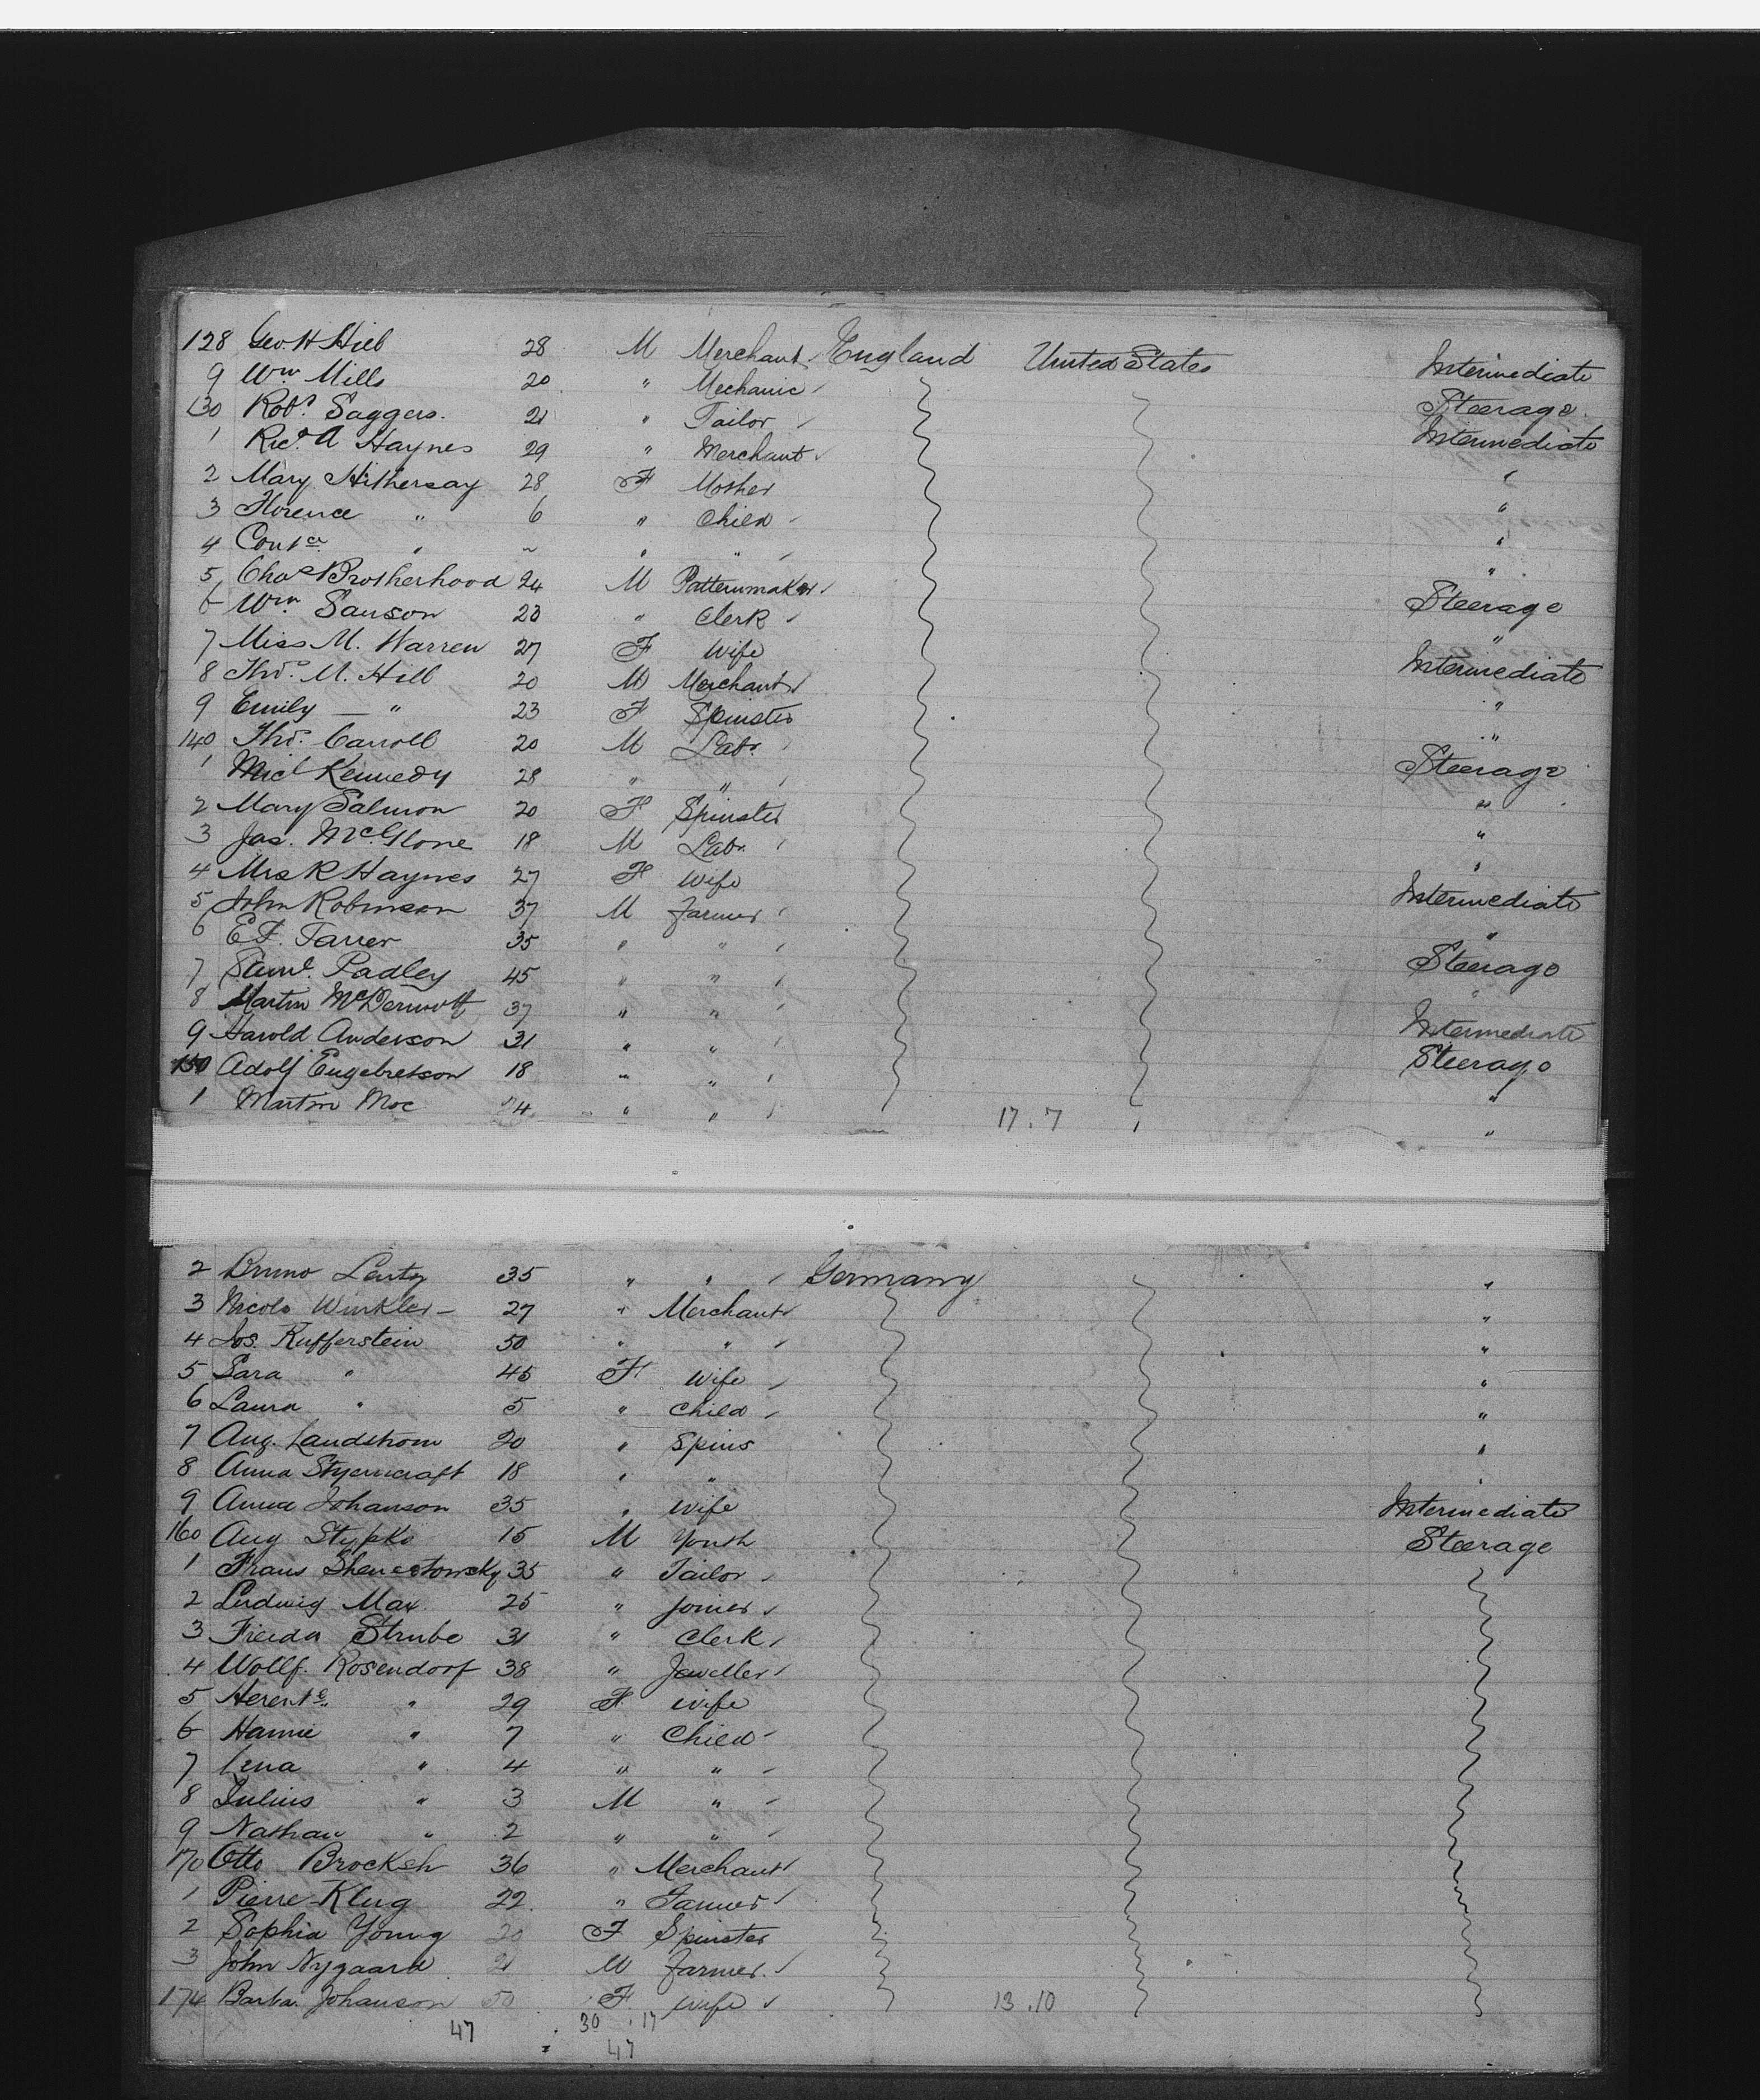 128 Geo. H Hill 28 M Merchant England United States Intermediate
9 Wm Mills 20 " Mechanic Steerage
130 Robt Saggers. 21 " Tailor Intermediate
1 Ricd A Haynes 29 " Merchant "
2 Mary Hithersay 28 F Mother "
3 Florence " 6 " Child "
4 Contce " ~ " " "
5 Chas Brotherhood 24 M Patternmaker Steerage
6 Wm Sanson 23 " Clerk "
7 Miss M. Warren 27 F Wife Intermediate
8 Thos. M. Hill 20 M Merchant "
9 Emily — " 23 F Spinster "
140 Thos. Carroll 20 M Labr. Steerage
1 Micl Kennedy 28 " " "
2 Mary Salmon 20 F Spinster "
3 Jas. McGlone 18 M Labr. "
4 Mrs R Haynes 27 F Wife Intermediate
5 John Robinson 37 M Farmer "
6 E F. Farrer 35 " " Steerage
7 Saml. Padley 45 " " "
8 Martin McDermott 37 " " Intermediate
9 Harold Anderson 31 " " Steerage
150 Adolf Engebretson 18 " " "
1 Martin Moe 24 " " 17.7 "
2 Bruno Lentz 35 " " Germany "
3 Nicolo Winkler - 27 " Merchant "
4 Jos. Kufferstein 50 " " "
5 Sara " 45 F Wife "
6 Laura " 5 " Child "
7 Aug. Landstrom 20 " Spins "
8 Anna 18 " " "
9 Anna Johanson 35 " Wife Intermediate
160 Aug Stypko 15 M Youth Steerage
1 Frans 35 " Tailor
2 Ludwig Max 25 " Joiner
3 Frieda Strube 31 " Clerk
4 Wollf. Rosendorf 38 " Jeweller
5 " 29 F Wife
6 Hannie " 7 " Child
7 Lena " 4 " "
8 Julius " 3 M "
9 Nathan " 2 " "
170 Otto Brocksh 36 " Merchant
1 Pierre Klug 22. " Farmer
2 Sophia Young 20 F Spinster
3 John Nygaard 21 M Farmer.
174 Barba. Johanson 50 F Wife 13.10
47 30 . 17
47